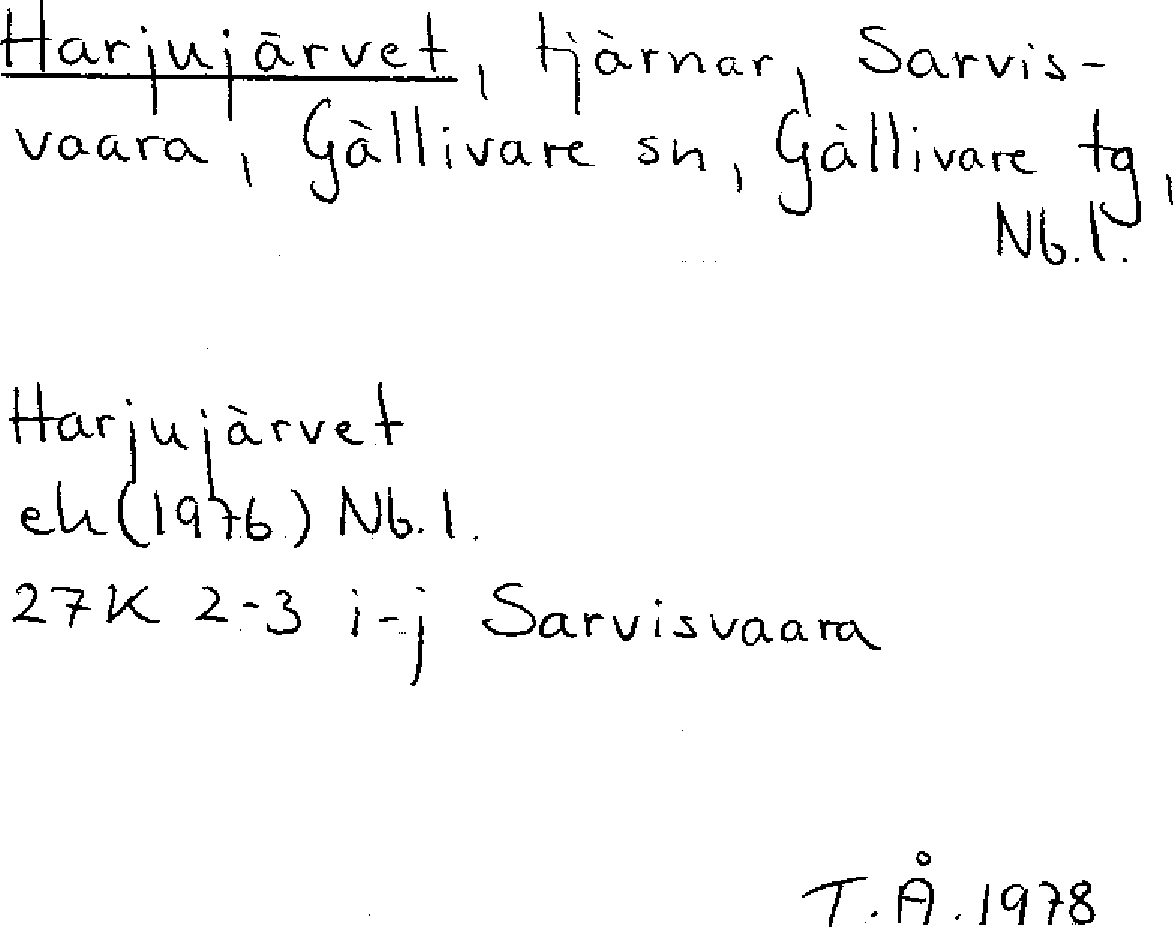 Harjujärvet, tjärnar, Sarvis-
vaara, Gällivare sn, Gällivare tg,
Nb.l.
Harjujärvet
ek (1976) Nb.l.
27K 2-3 i-j Sarvisvaara
T.Å. 1978